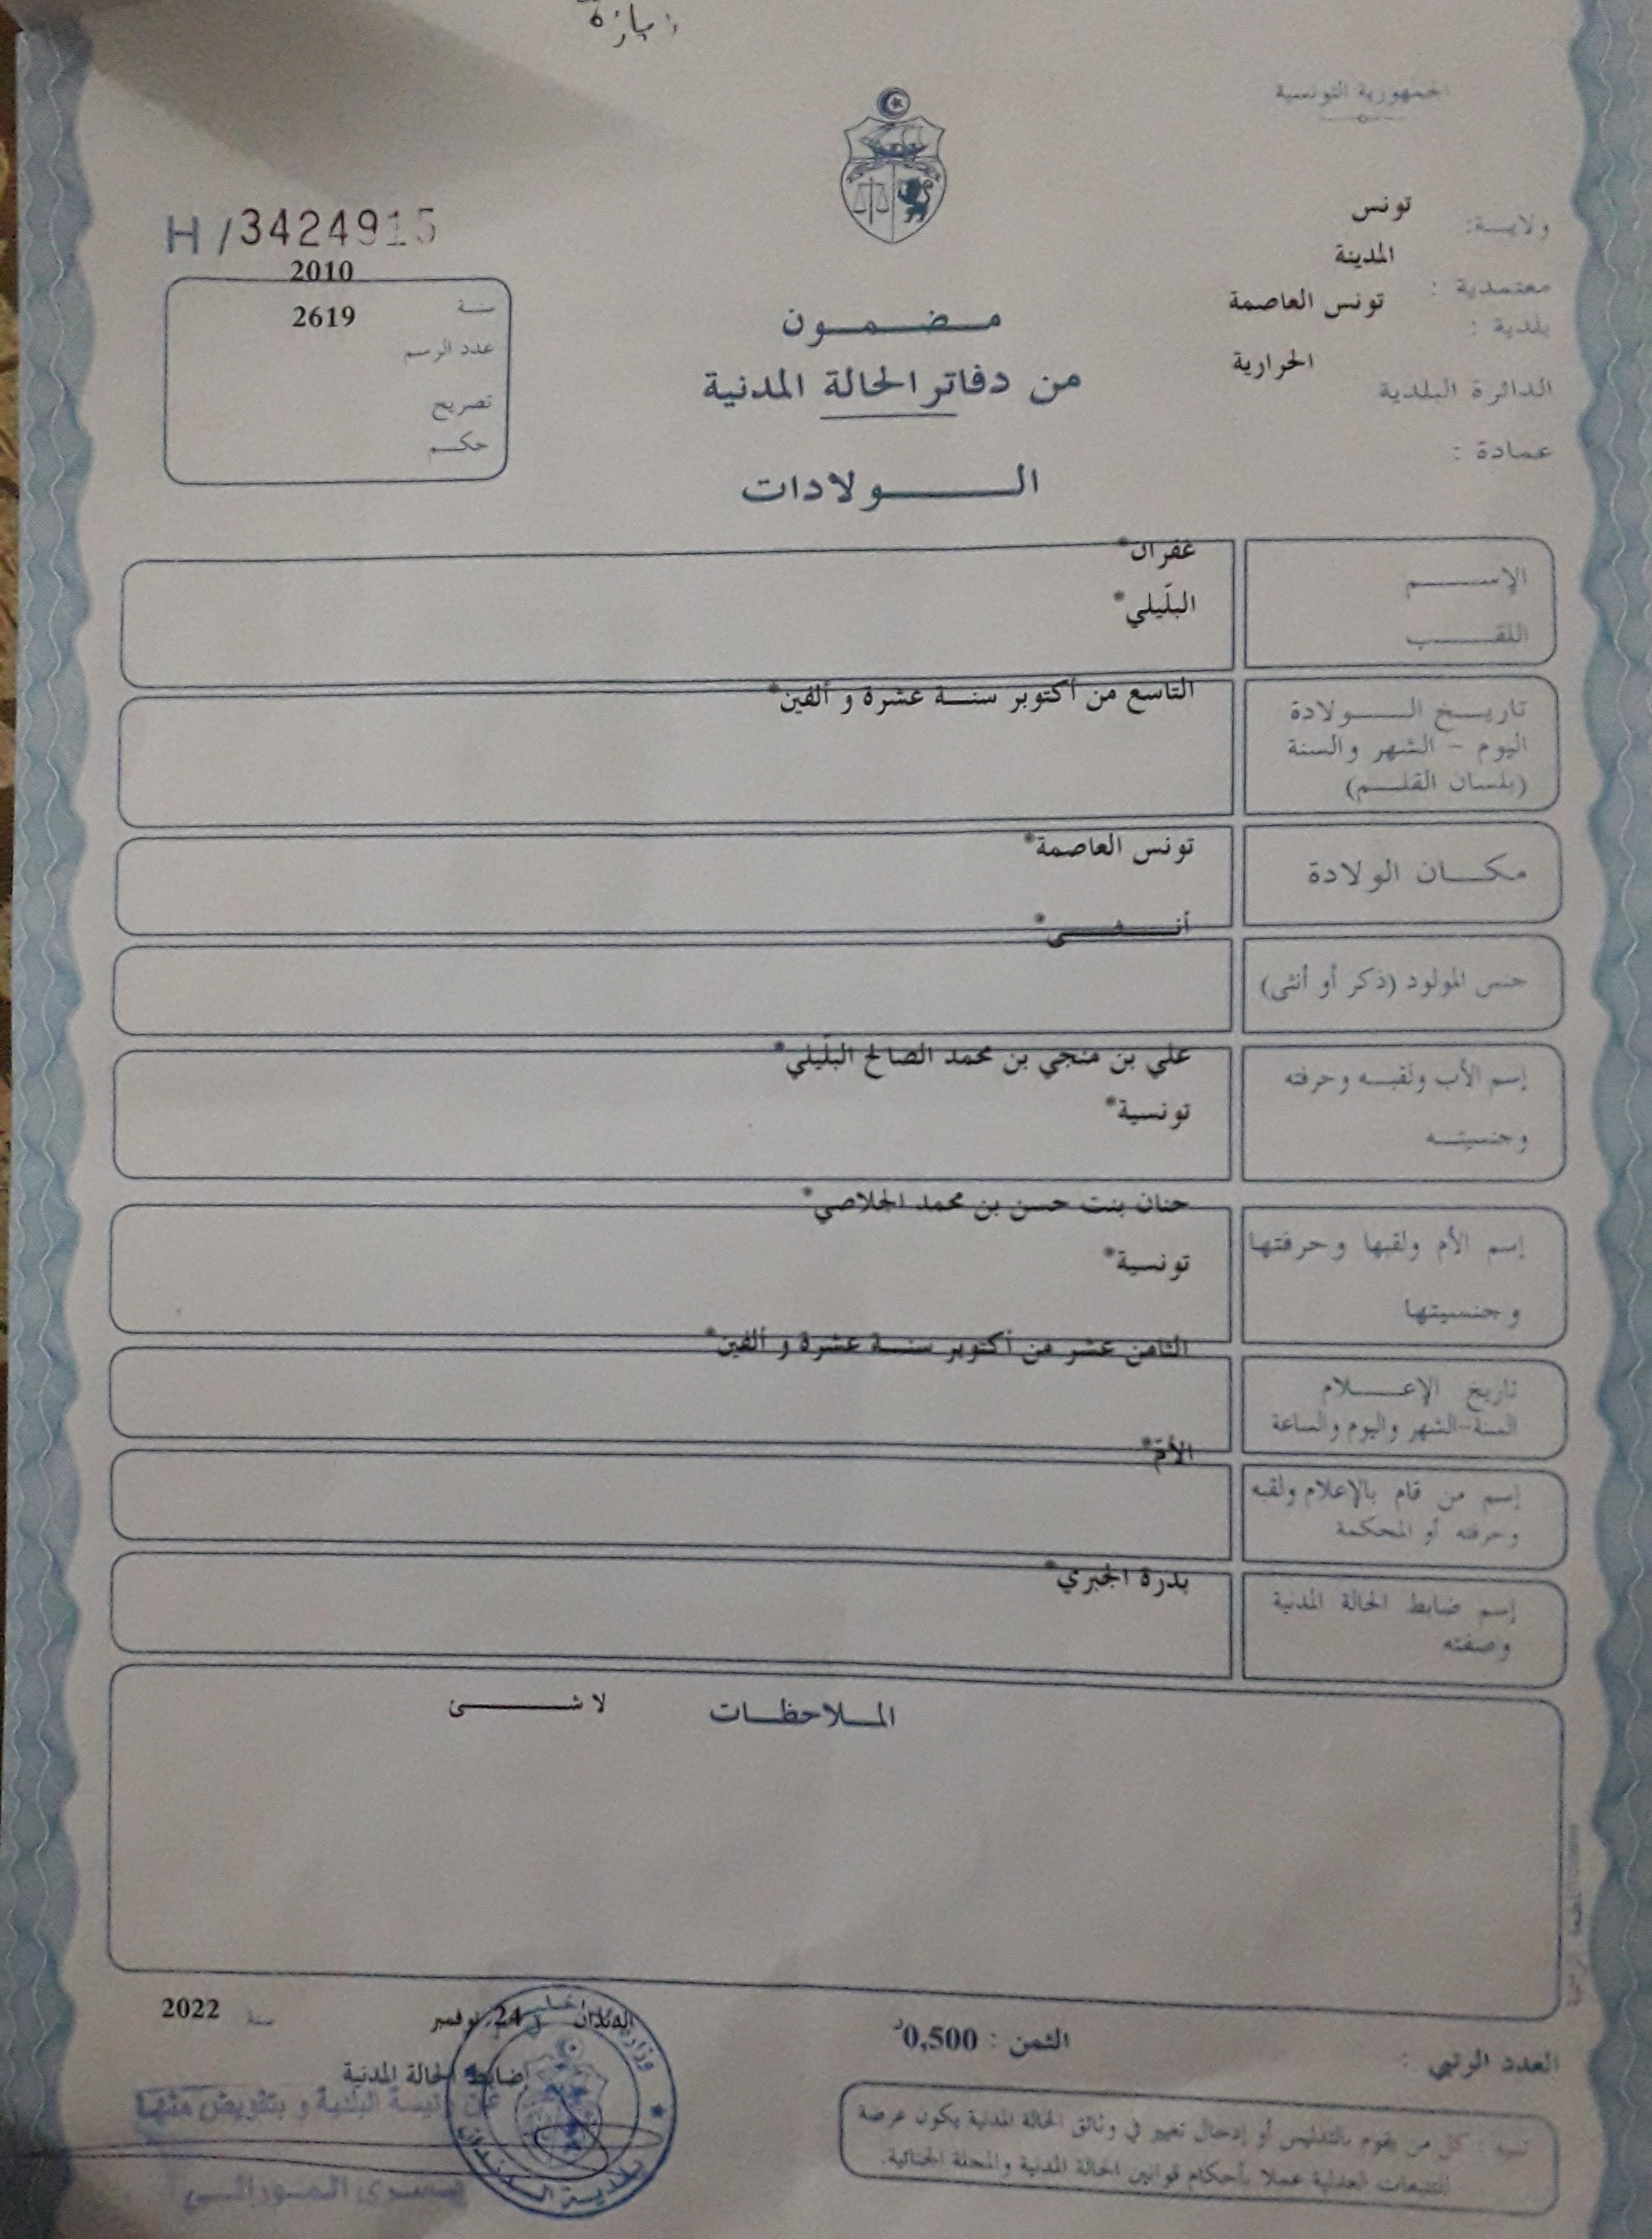 زيارة
الجمهورية التونسية
ولايـــة: تونس
معتمدية : المدينة
بلدية : تونس العاصمة
الدائرة البلدية الحرارية
عمادة :
H/3424915
سنـة 2010
عدد الرسم 2619
تصريح
حكــم
مـضـمـون
من دفاتر الحالة المدنية
الـولادات
الإســـم غفران*
اللقـــب البلّيلي*
تاريــخ الــولادة التاسع من أكتوبر سنــة عشرة و ألفين*
اليوم - الشهر والسنة
(بلسان القلــم)
مكــان الولادة تونس العاصمة*
جنس المولود (ذكر أو أنثى) أنــثــى*
إسم الأب ولقبــه وحرفته علي بن منجي بن محمد الصالح البلّيلي*
وجنسيتــه تونسية*
إسم الأم ولقبها وحرفتها حنان بنت حسن بن محمد الجلاصي*
وجنسيتها تونسية*
تاريخ الإعـــلام الثامن عشر من أكتوبر سنــة عشرة و ألفين*
السنة-الشهر واليوم والساعة
إسم من قام بالإعلام ولقبه الأمّ*
وحرفته أو المحكمة
إسم ضابط الحالة المدنية بدرة الجبري*
وصفته
المـلاحظـات لا شـــئ
العدد الرتبي :
الثمن : 0,500د
24 نوفمبر سنة 2022
ضابط الحالة المدنية
عن رئيسة البلدية و بتفويض منها
يسرى
تنبيه : كل من يقوم بالتدليس أو إدخال تغيير في وثائق الحالة المدنية يكون عرضة
للتتبعات العدلية عملا بأحكام قوانين الحالة المدنية والمجلة الجنائية.